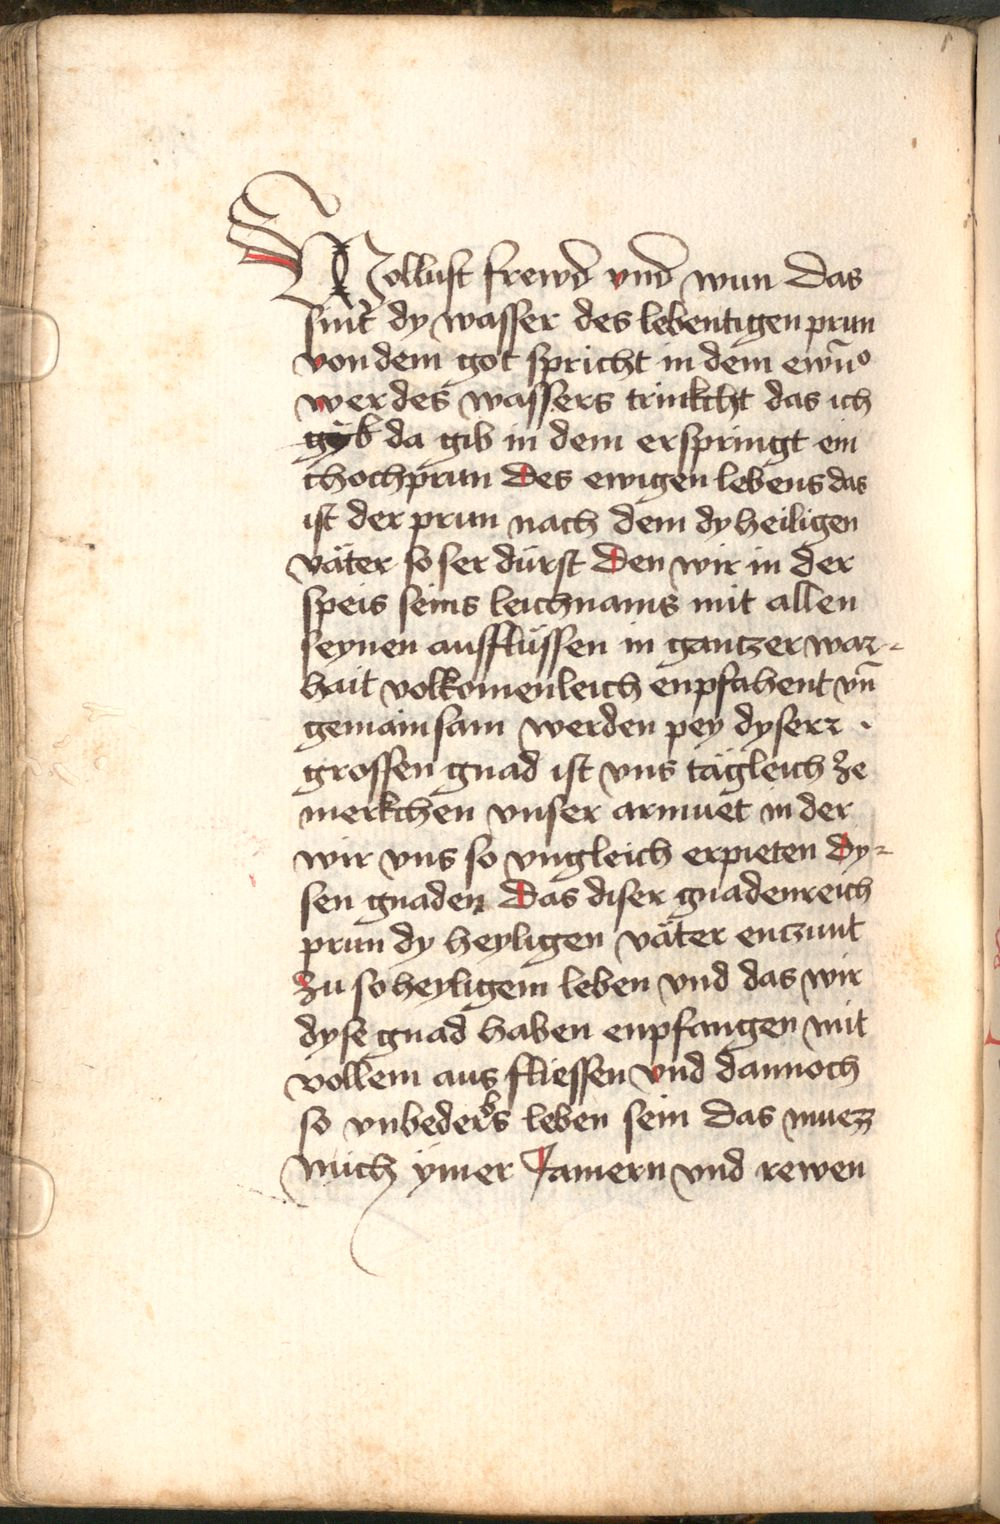 Wollust frewd vnd wun das
sint dy wasser des lebentigen prun
von dem got spricht in dem ewn̄o
wer des wassers trinkcht das ich
gyb da gib in dem erspringt ein
chochprun des ewigen lebens das
ist der prun nach dem dy heiligen
väter so ser dürst den wir in der
speis seins leichnams mit allen
seynen ausflüssen in gantzer war-
hait volkomenleich enpfahent vn̄
gemainsam werden pey dyserr ·
grossen gnad ist vns tägleich ze
merkchen vnser armuet in der
wir vns so vngleich erpieten dy-
sen gnaden Das diser gnadenreich
prun dy heyligen väter enczunt
zu so heyligem leben vnd das wir
dyse gnad haben enpfangen mit
vollem aus fliessen vnd dannoch
so vnbederbs leben sein das muez
mich ÿmer Jamern vnd rewen